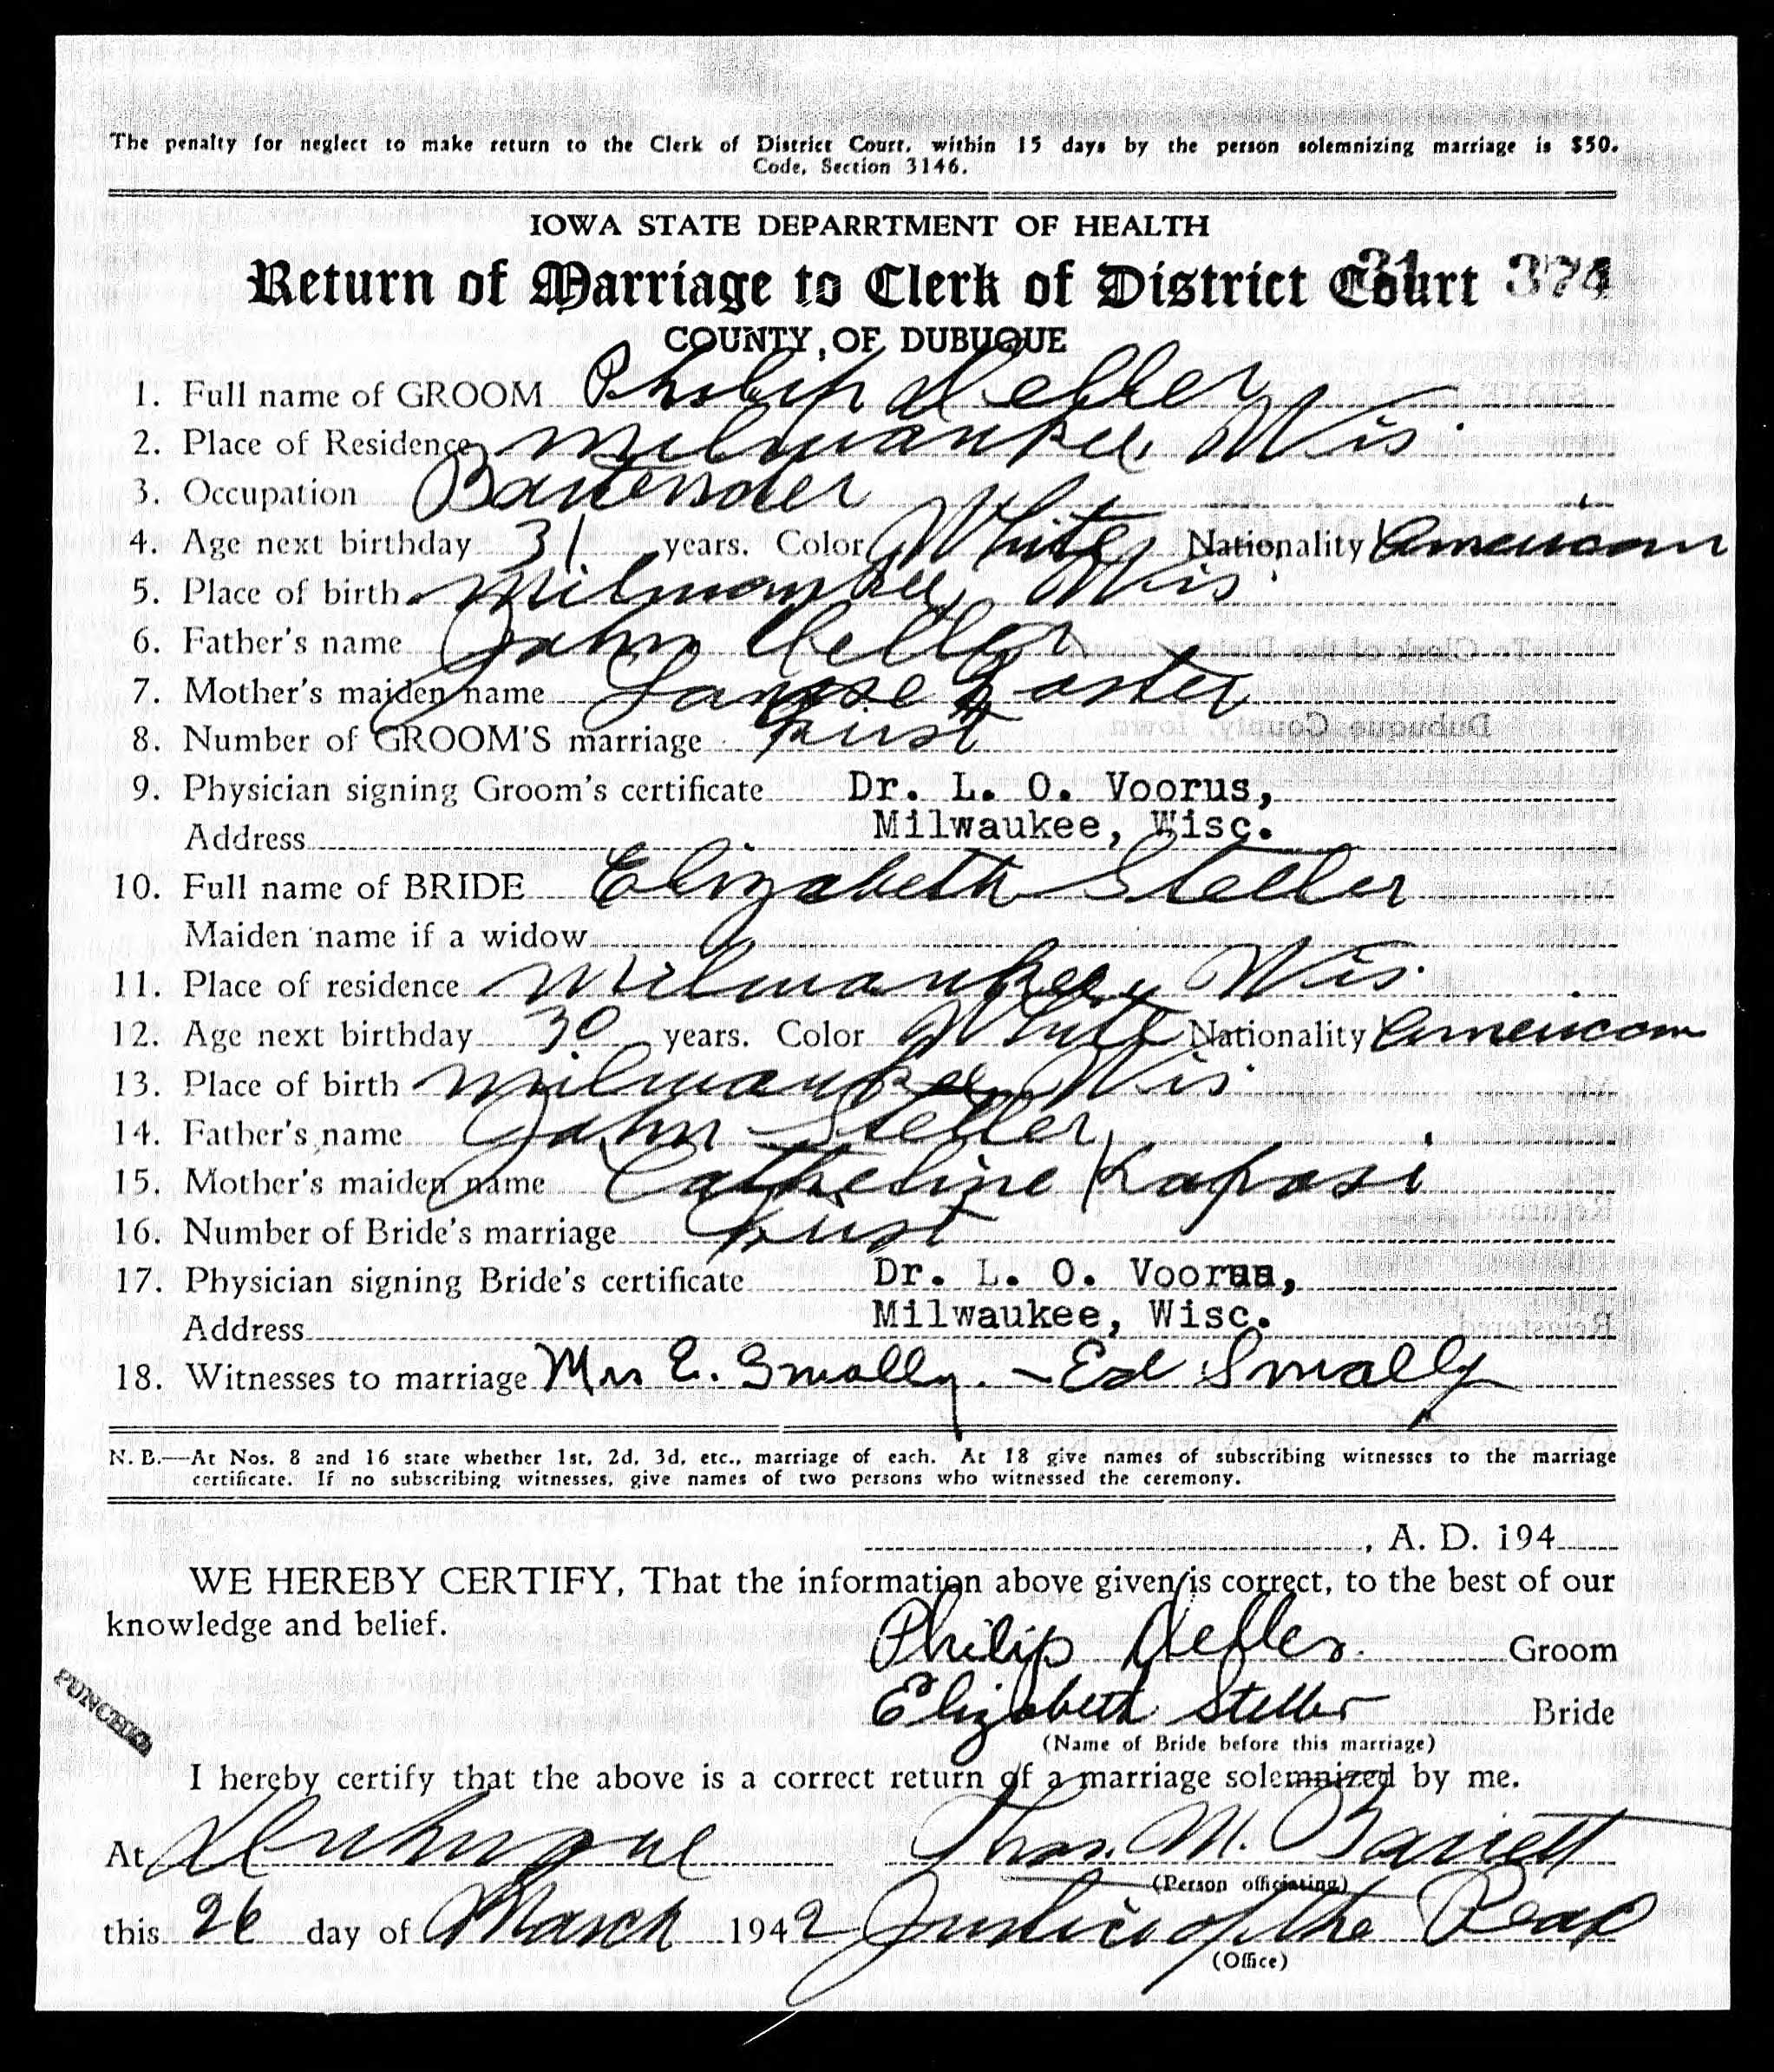 The penalty for neglect to make return to the Clerk of District Court, within 15 days by the person solemnizing marriage is $50.
Code, Section 3146.
IOWA STATE DEPARRTMENT OF HEALTH
Return of Marriage to Clerk of District Court 31 374
COUNTY OF DUBUQUE
1. Full name of GROOM Philip
2. Place of Residence Milwaukee, Wis.
3. Occupation Bartender
4. Age next birthday 31 years. Color White Nationality American
5. Place of birth Milwaukee, Wis.
6. Father's name John
7. Mother's maiden name
8. Number of GROOM'S marriage First
9. Physician signing Groom's certificate Dr. L. O. Voorus,
Address Milwaukee, Wisc.
10. Full name of BRIDE Elizabeth Steller
Maiden name if a widow
11. Place of residence Milwaukee, Wis.
12. Age next birthday 30 years. Color White Nationality American
13. Place of birth Milwaukee, Wis.
14. Father's name John Steller
15. Mother's maiden name Catherine Kaposi
16. Number of Bride's marriage First
17. Physician signing Bride's certificate Dr. L. O. Voorus,
Address Milwaukee, Wisc.
18. Witnesses to marriage Mrs E. Smally. - Ed Smally
N. B.—At Nos. 8 and 16 state whether 1st, 2d, 3d, etc., marriage of each. At 18 give names of subscribing witnesses to the marriage
certificate. If no subscribing witnesses, give names of two persons who witnessed the ceremony.
, A. D. 194
WE HEREBY CERTIFY, That the information above given is correct, to the best of our
knowledge and belief.
Philip Groom
Elizabeth Steller Bride
(Name of Bride before this marriage)
PUNCHED
I hereby certify that the above is a correct return of a marriage solemnized by me.
At Dubuque Thos. M. Barrett
(Person officiating)
this 26 day of March 1942 Justice of the Peace
(Office)